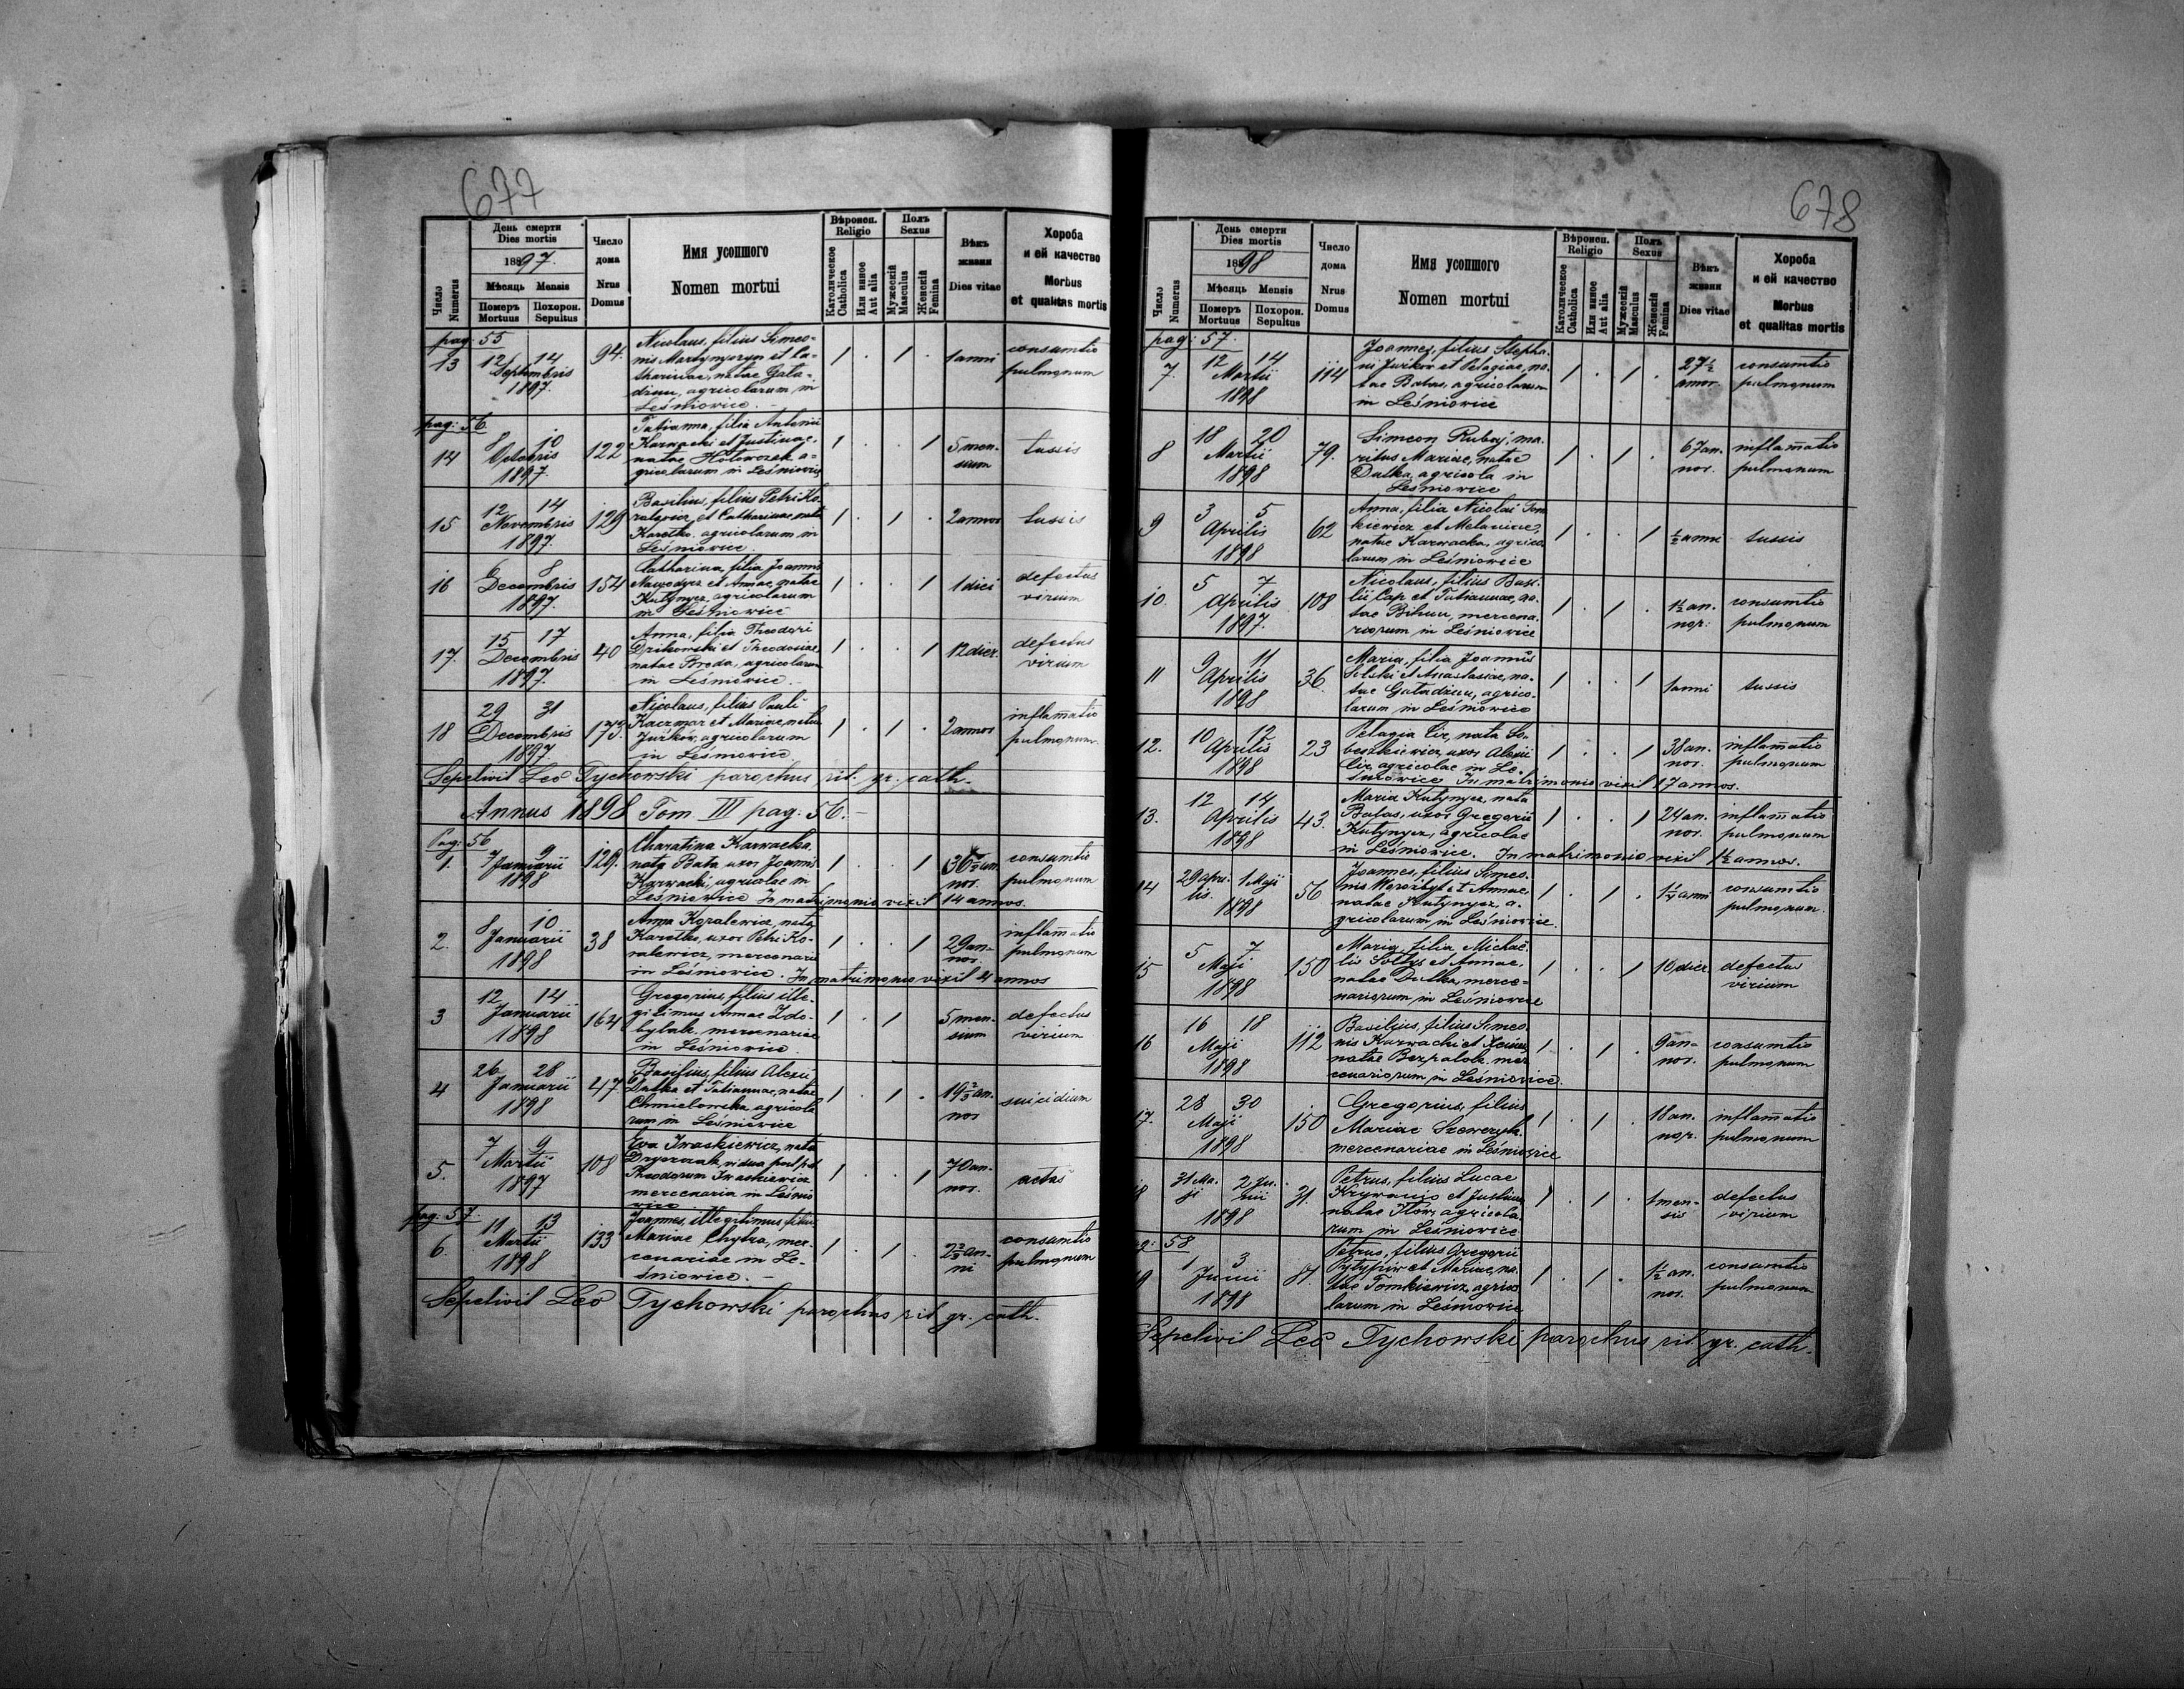 677
Число
Numerus
День смерти
Dies mortis
1897.
Мѣсяць Mensis
Померъ
Mortuus
Похорон.
Sepultus
Число
дома
Nrus
Domus
Имя усопшого
Nomen mortui
Вѣроисп.
Religio
Католическое
Catholica
Или инное
Aut alia
Полъ
Sexus
Мужескій
Masculus
Женскій
Femina
Вѣкъ
жизни
Dies vitae
Хороба
и ей качество
Morbus
et qualitas mortis
pag: 55
13
12 14
Septembris
1897.
94.
Nicolaus, filius Simeo-
nis Martynyszyn et Ca-
tharinae, natae Gała-
dziun, agricolarum in
Leśniowice.
1 . 1 .
1 anni
consumtio
pulmonum
pag: 56.
14
8 10
Octobris
1897.
122
Tatianna, filia Antonii
Karwacki et Justinae,
natae Hołowczak a-
gricolarum in Leśniowice
1 . . 1
5 men-
sium
tussis
15
12 14
Novembris
1897.
129
Basilius, filius Petri Ko-
ralewicz et Catharinae, nata
Karetko, agricolarum in
Leśniowice.
1 . 1 .
2 annos
tussis
16
6 8
Decembris
1897.
154
Catharina, filia Joannis
et Annae, natae
Kutynycz, agricolarum
in Leśniowice
1 . . 1
1 diei
defectus
virium
17.
15 17
Decembris
1897.
40
Anna, filia Theodori
Dzikowski et Theodosiae
natae Broda, agricolarum
in Leśniowice.-
1 . . 1
12 dier.
defectus
virium
18
29 31
Decembris
1897
173.
Nicolaus, filius Pauli
Kaczmar et Mariae, natae
Jurków, agricolarum
in Leśniowice
1 . 1 .
2 annos
inflam̄atio
pulmonum.
Sepelivit Leo Tychowski parochus rit. gr. cath.
Annus 1898 Tom III pag: 56.-
Pag: 56
1.
7 9
Januarii
1898
129.
Charatina Karwacka,
nata Bata uxor Joannis
Karwacki, agricolae in
Leśniowice In matrimonio vixit 14 annos.
1 . . 1
an-
nor.
consumtio
pulmonum
2.
8 10
Januarii
1898
38
Anna Koralewicz, nata
Karetko, uxor Petri Ko-
ralewicz, mercenarii
in Leśniowice. In matrimonio vixit 4 annos
1 . . 1
29 an-
nor.
inflam̄atio
pulmonum
3
12 14
Januarii
1898
164
Gregorius, filius ille-
gitimus Annae Zdo-
bylak, mercenariae
in Leśniowice.
1 . 1
5 men-
sium
defectus
virium
4
26 28
Januarii
1898
47
Basilius, filius Alexii
Dulka et Tatiannae, natae
Chmielowska agricola-
rum in Leśniowice
1 . 1 .
19 2/3 an-
nos
suicidium
5.
7 9
Martii
1897
108
Eva Iwaskiewicz, nata
vidua post
Theodorum Iwaskiewicz
mercenaria in Leśnio
wice
1 . . 1
70 an-
nor.
aetas
pag: 57.
6.
11 13
Martii
1898
133
Joannes, illegitimus, filius
Mariae Chytra, mer-
cenariae in Le-
śniowice.-
1 . 1 .
2 2/3 an-
ni
consumtio
pulmonum
Sepelivit Leo Tychowski parochus rit gr. cath.
678
Число
Numerus
День смерти
Dies mortis
1898
Мѣсяць Mensis
Померъ
Mortuus
Похорон.
Sepultus
Число
дома
Nrus
Domus
Имя усопшого
Nomen mortui
Вѣроисп.
Religio
Католическое
Catholica
Или инное
Aut alia
Полъ
Sexus
Мужескій
Masculus
Женскій
Femina
Вѣкъ
жизни
Dies vitae
Хороба
и ей качество
Morbus
et qualitas mortis
pag: 57.
7.
12 14
Martii
1898
114
Joannes, filius Stepha-
ni Jurkow et Pelagiae, na-
tae Babas, agricolarum
in Leśniowice
1 . 1 .
27 1/2
annor.
consumtio
pulmonum
8
18 20
Martii
1898
79.
Simeon Rubaj, ma-
ritus Mariae, natae
Dulka, agricola in
Leśniowice
1 . 1 .
67 an-
nor.
inflam̄atio
pulmonum
9
3 5
Aprilis
1898
62
Anna, filia Nicolai Tom
kiewicz et Melaniae,
natae Karwacka, agrico
larum in Leśniowice
1 . . 1
1/2 anni
tussis
10.
5 7
Aprilis
1897.
108
Nicolaus, filius Basi-
lii Cap et Tatiannae, na-
tae Bihun, mercena-
riorum in Leśniowice
1 . 1 .
1 1/2 an-
nor.
consumtio
pulmonum
11
9 11
Aprilis
1898
36.
Maria, filia Joannis
Selski et Anastasiae, na-
tae Gaładziun, agrico-
larum in Leśniowice
1 . . 1
1 anni
tussis
12.
10 12
Aprilis
1898
23
Pelagia Cix, nata So-
beszkiewicz, uxor Alexii
Cix, agricolae in Le-
śniowice In matrimonio vixit 17 annos.
1 . . 1
38 an-
nor.
inflam̄atio
pulmonum
13.
12 14
Aprilis
1898
43.
Maria Kutynycz, nata
Babas, uxor Gregorii
Kutynycz, agricolae
in Leśniowice. In matrimonio vixit 1 1/2 annos.
1 . . 1
24 an-
nor.
inflam̄atio
pulmonum
14
29 apri- 1 Maji
lis.
1898
56
Joannes, filius Simeo-
nis Worożbyt et Annae,
natae Kutynycz, a-
gricolarum in Leśniowice.
1 . 1 .
1 1/4 anni
consumtio
pulmonum.
15
5 7
Maji
1898
150
Maria, filia Michaë-
lis Sołtys et Annae,
natae Dulka, merce-
nariorum in Leśniowice
1 . . 1
10 dier.
defectus
virium
16
16 18
Maji
1898
112
Basilius, filius Simeo-
nis Karwacki et Xeniae,
natae Bezpalok, mer
cenariorum in Leśniowice.
1 . 1 .
9 an-
nor.
consumtio
pulmonum
17.
28 30
Maji
1898
150
Gregorius, filius
Mariae Szewczyk
mercenariae in Leśniowice
1 . 1
18 an-
nor.
inflam̄atio
pulmonum
18
31 Ma- 2 Ju-
ji nii
1898
31.
Petrus, filius Lucae
et Justinae
natae Iłów, agricola-
rum in Leśniowice
1 . 1 .
1 men-
sis
defectus
virium
58
19
1 3
Junii
1898
81
Petrus, filius Gregorii
et Mariae, na-
tae Tomkiewicz, agrico
larum in Leśniowice
1 . 1 .
1 1/2 an-
nor.
consumtio
pulmonum
Sepelivit Leo Tychowski parochus rit gr. cath.